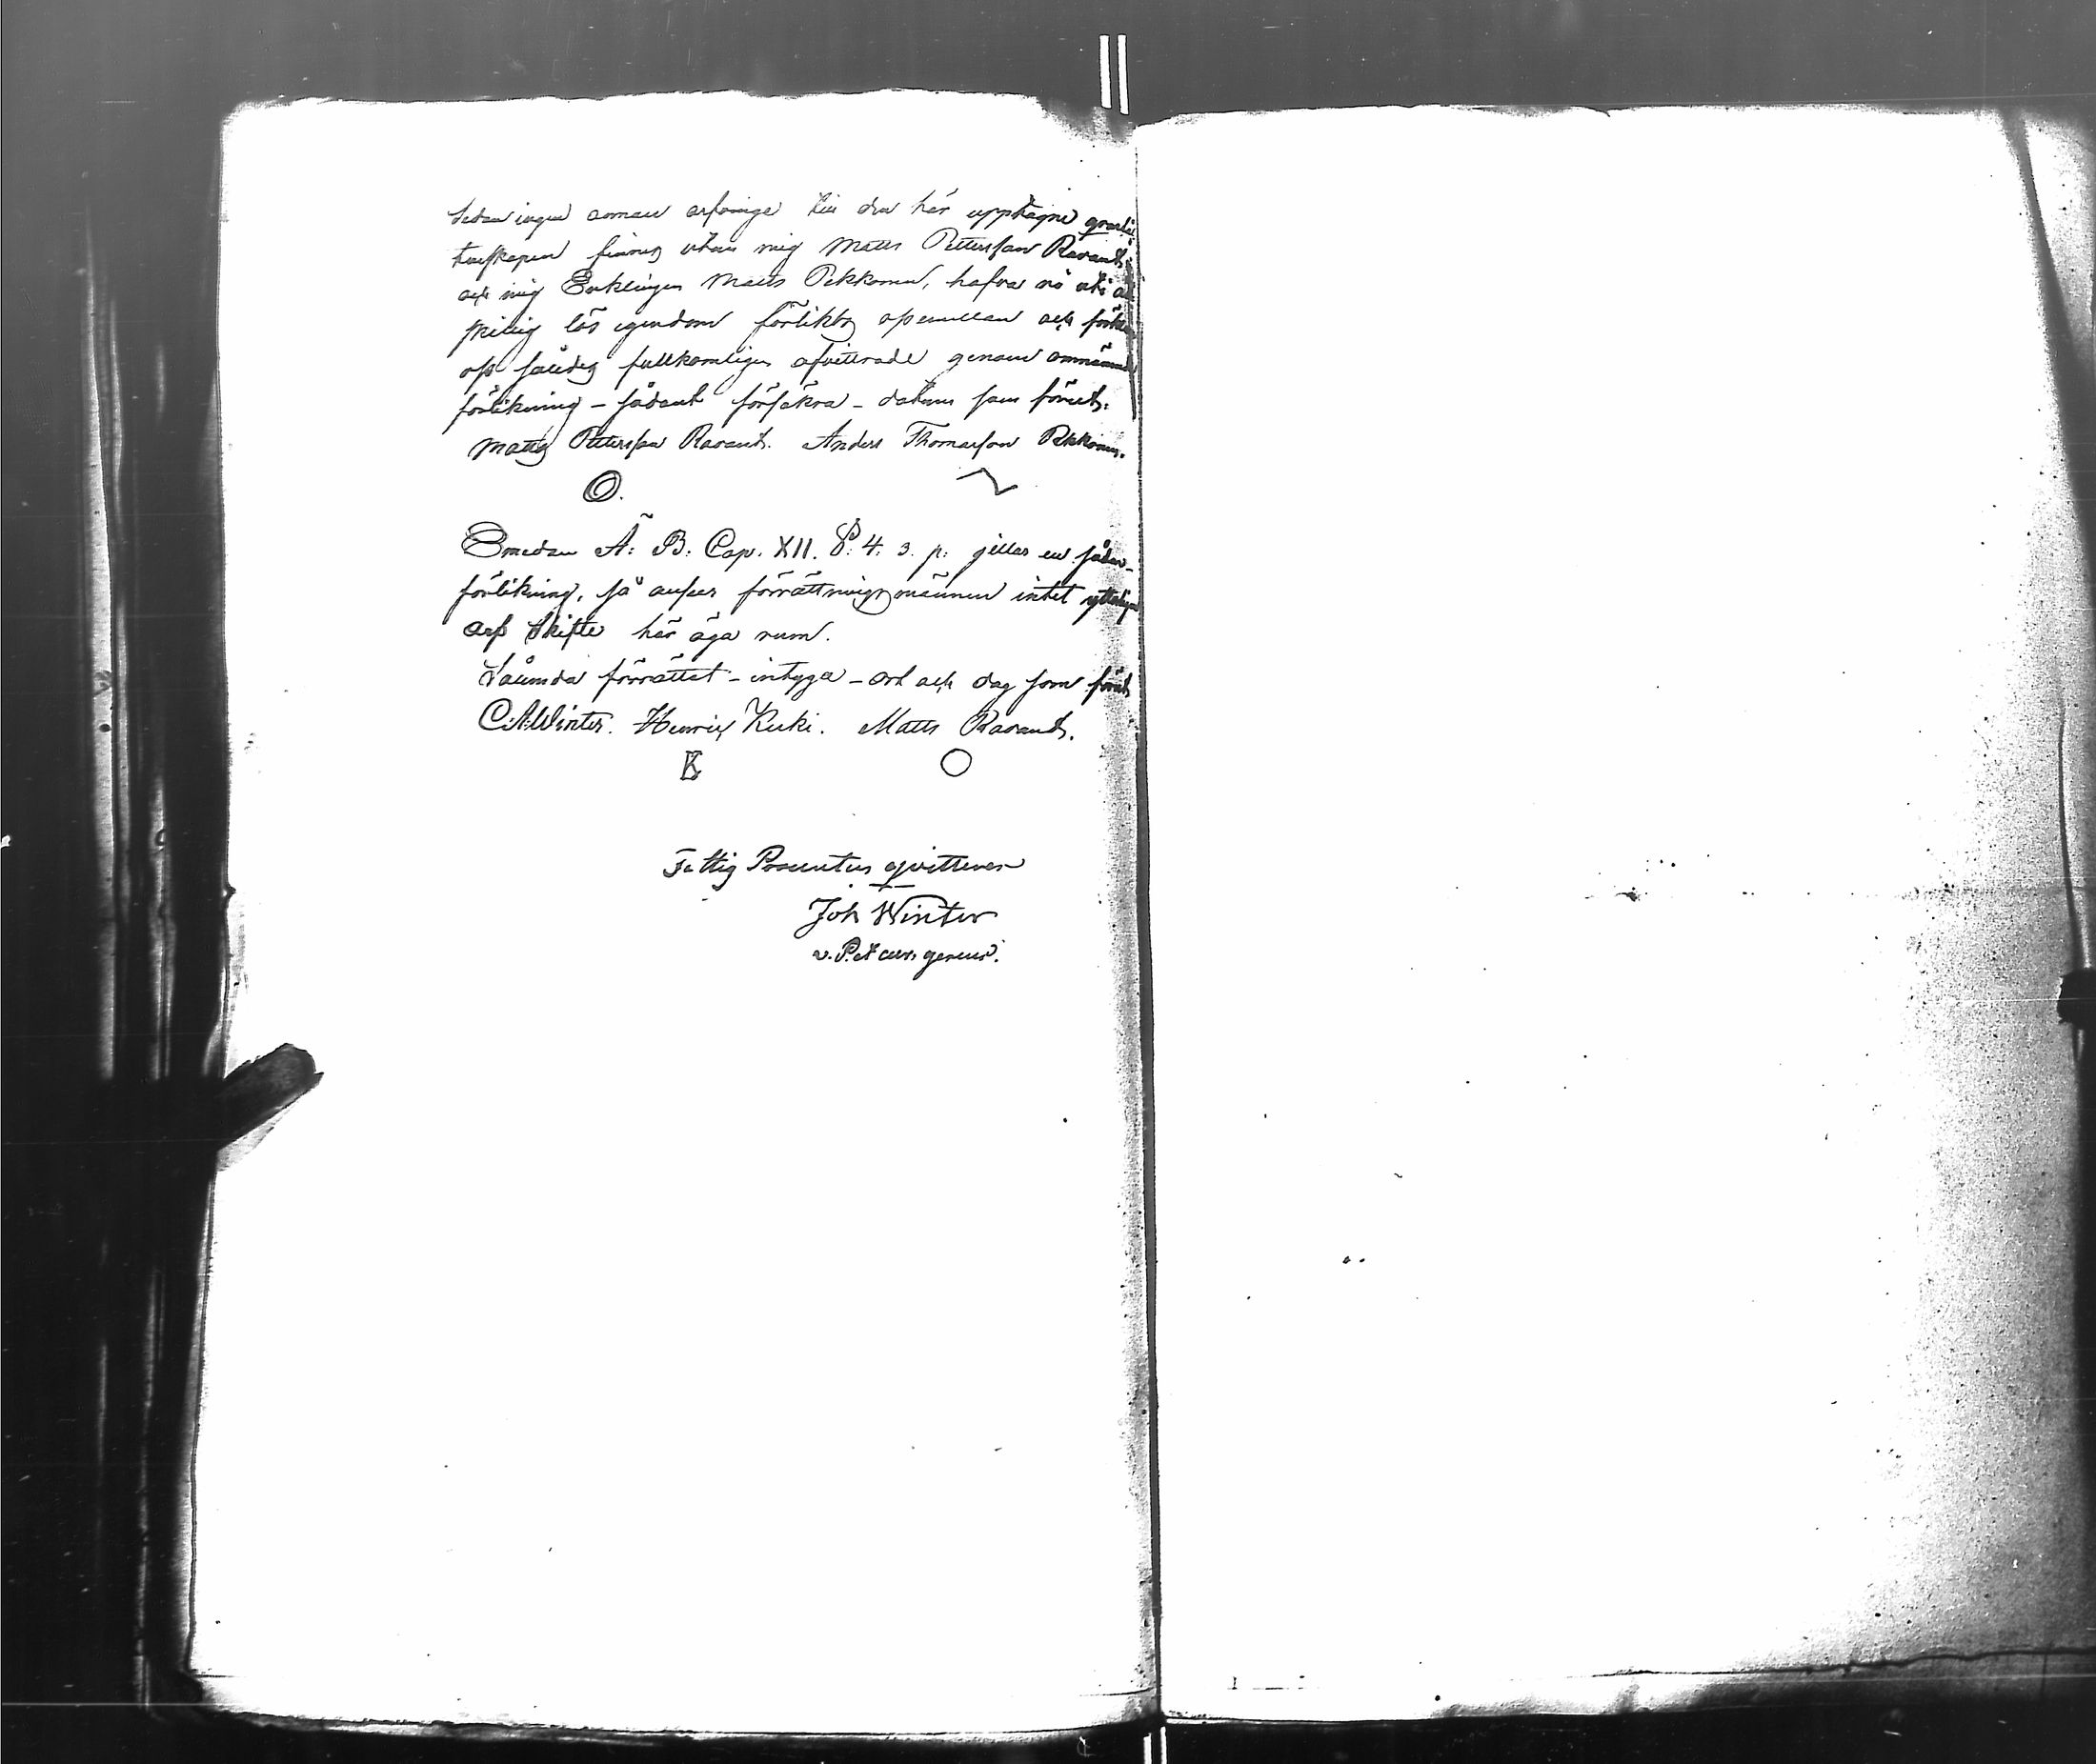 Sedan ingen annan arfvinge till den här upptagne qvarlå-
tenskapen finnes utan mig Matts Pettersson Ravants
och mig Enklingen Matts Pekkonen, hafva vi uti all
skillig lös egendom förlikts oss emellan och förklara
oss således fullkomligen afvittrade genom omnämnde
förlikning – sådant försäkra – datum som förut.
Matts Pettersson Ravants. Anders Thomasson Pekkonen.
Emedan Ä: B: Cap. XII. §: 4. s. p. gillar en sådan
förlikning, så anser förrättningsmännen intet ytterligare
arf skifte här äga rum.
Sålunda förrättat – intyga – ort och dag som förut
C. A. Winter. Henric Kuki. Matts Ravants.
K
Fattig Procenten qvitterar
Joh Winter
v. P. et cur. gener.